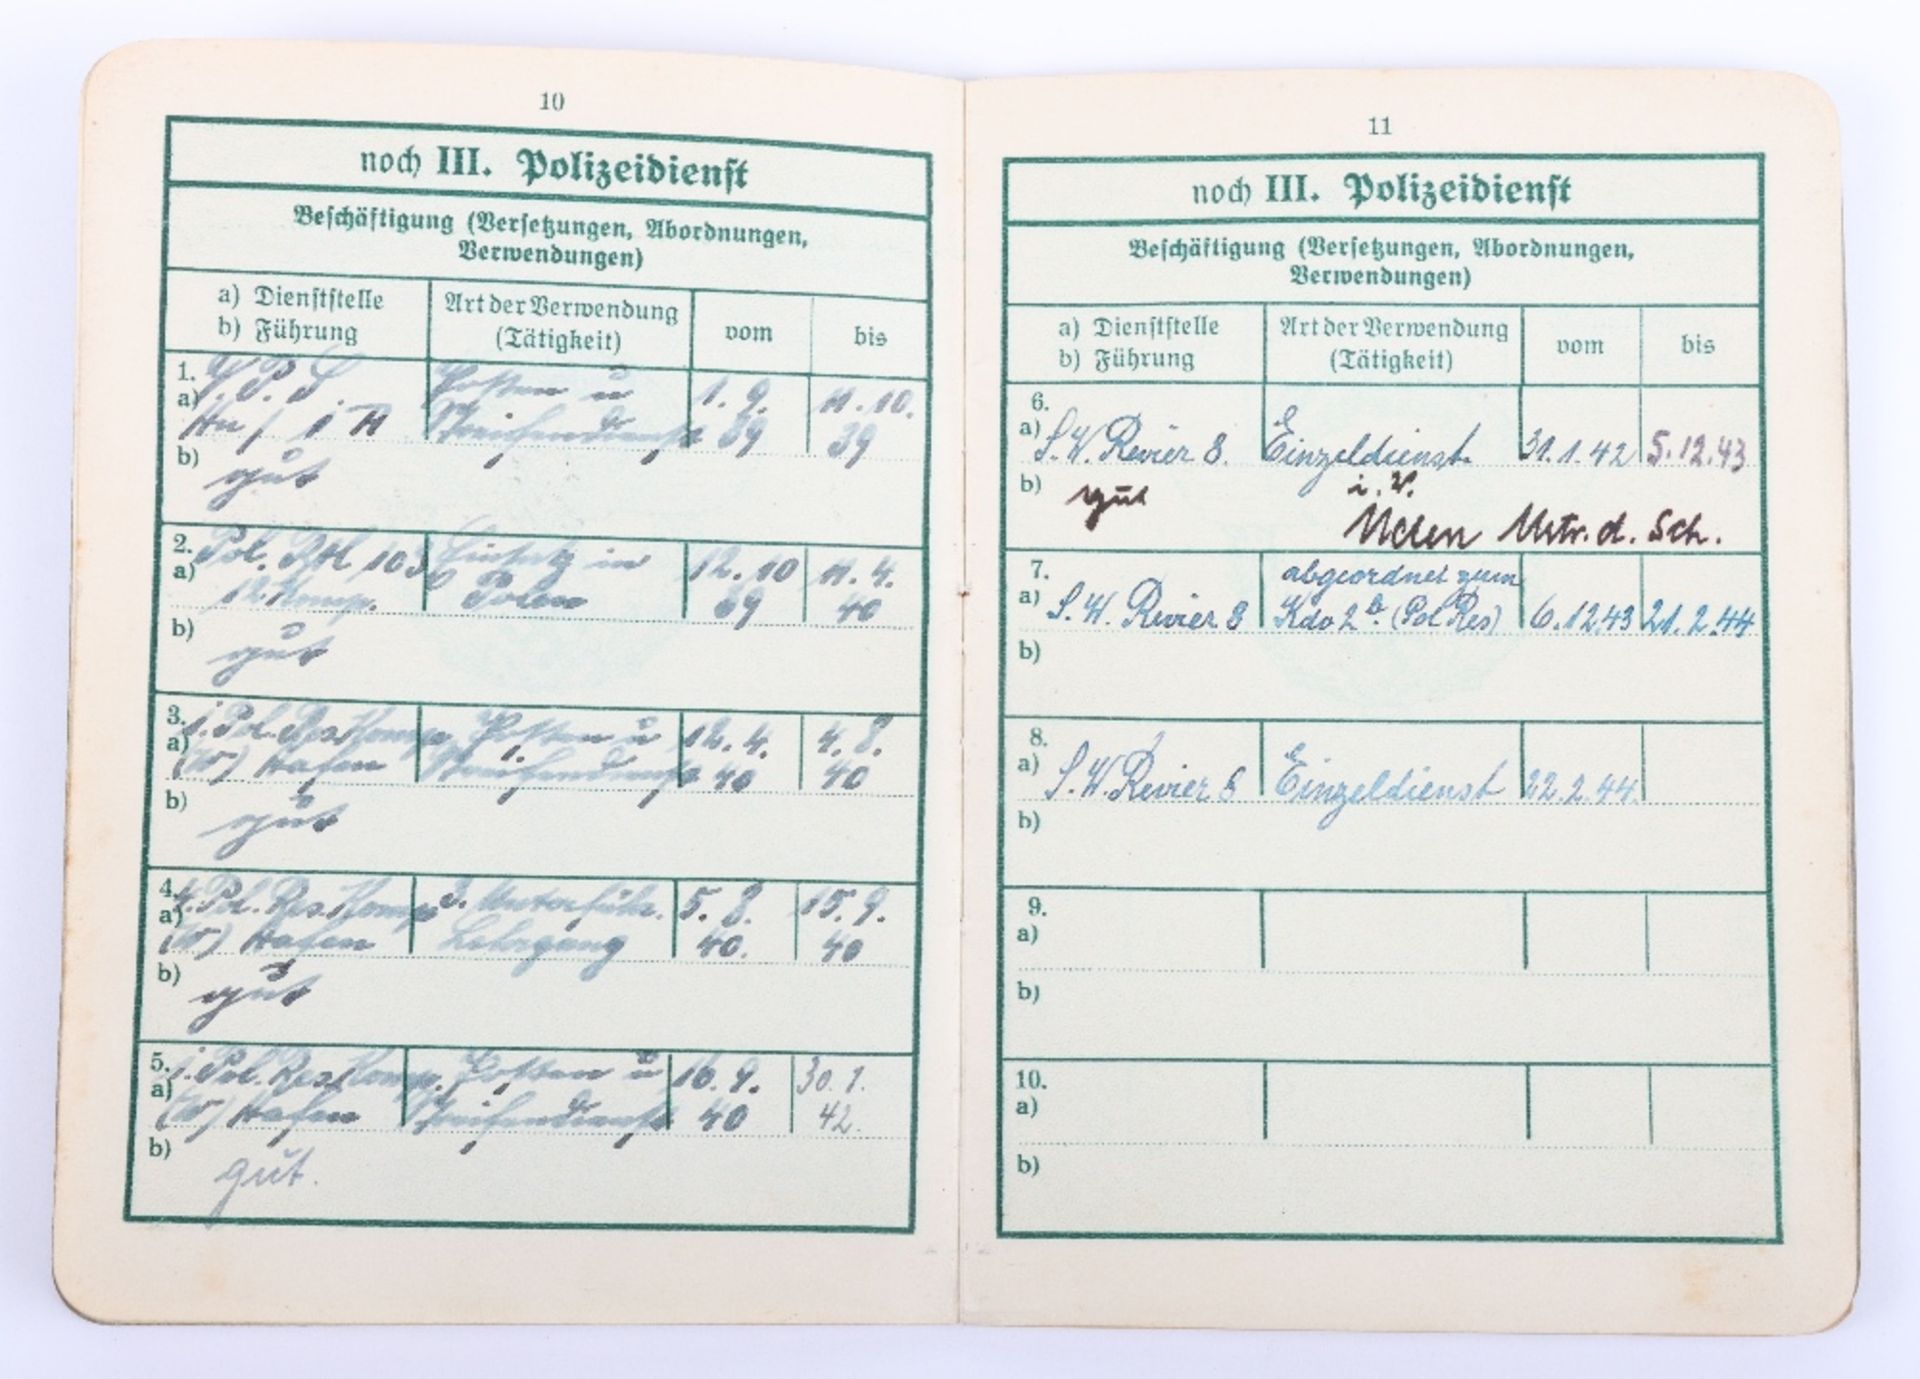 10
noch III. Polizeidienst
Beschäftigung (Versetzungen, Abordnungen,
Verwendungen)
a) Dienststelle
b) Führung
Art der Verwendung
(Tätigkeit)
vom
bis
1.
a)
Posten u
Streifendienst
1. 9.
39
11. 10.
39
b)
gut
2.
a) Pol. Btl 103
12. Komp.
Einsatz in
Polen
12. 10
39
11. 4.
40
b)
gut
3.
a) 1. Pol. Res. Komp
(W) Hafen
Posten u
Streifendienst
12. 4.
40
4. 8.
40
b)
gut
4.
a) 4. Pol. Res. Komp
(W) Hafen
3. Unterführ.
Lehrgang
5. 8.
40.
15. 9.
40
b)
gut
5.
a) 1. Pol. Res. Komp.
(W) Hafen
Posten u
Streifendienst
16. 9.
40
30. 1.
42.
b)
gut.
11
noch III. Polizeidienst
Beschäftigung (Versetzungen, Abordnungen,
Verwendungen)
a) Dienststelle
b) Führung
Art der Verwendung
(Tätigkeit)
vom
bis
6.
a) S. W. Revier 8.
Einzeldienst
31. 1. 42
5. 12. 43
b) gut
i. V.
Mstr. d. Sch.
7.
a) S. W. Revier 8
abgeordnet zum
Kdo 2b. (Pol Res)
6. 12. 43
21. 2. 44
b)
8.
a) S. W. Revier 8
Einzeldienst
22. 2. 44.
b)
9.
a)
b)
10.
a)
b)